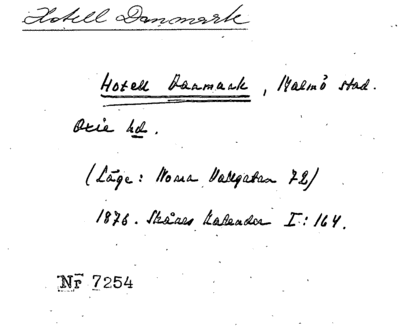 Hotell Danmark
Hotell Danmark, Malmö stad.
Oxie hd.
(Läge: Norra Vallgatan 72)
1876. Skånes Kalender I:164.
Nr 7254